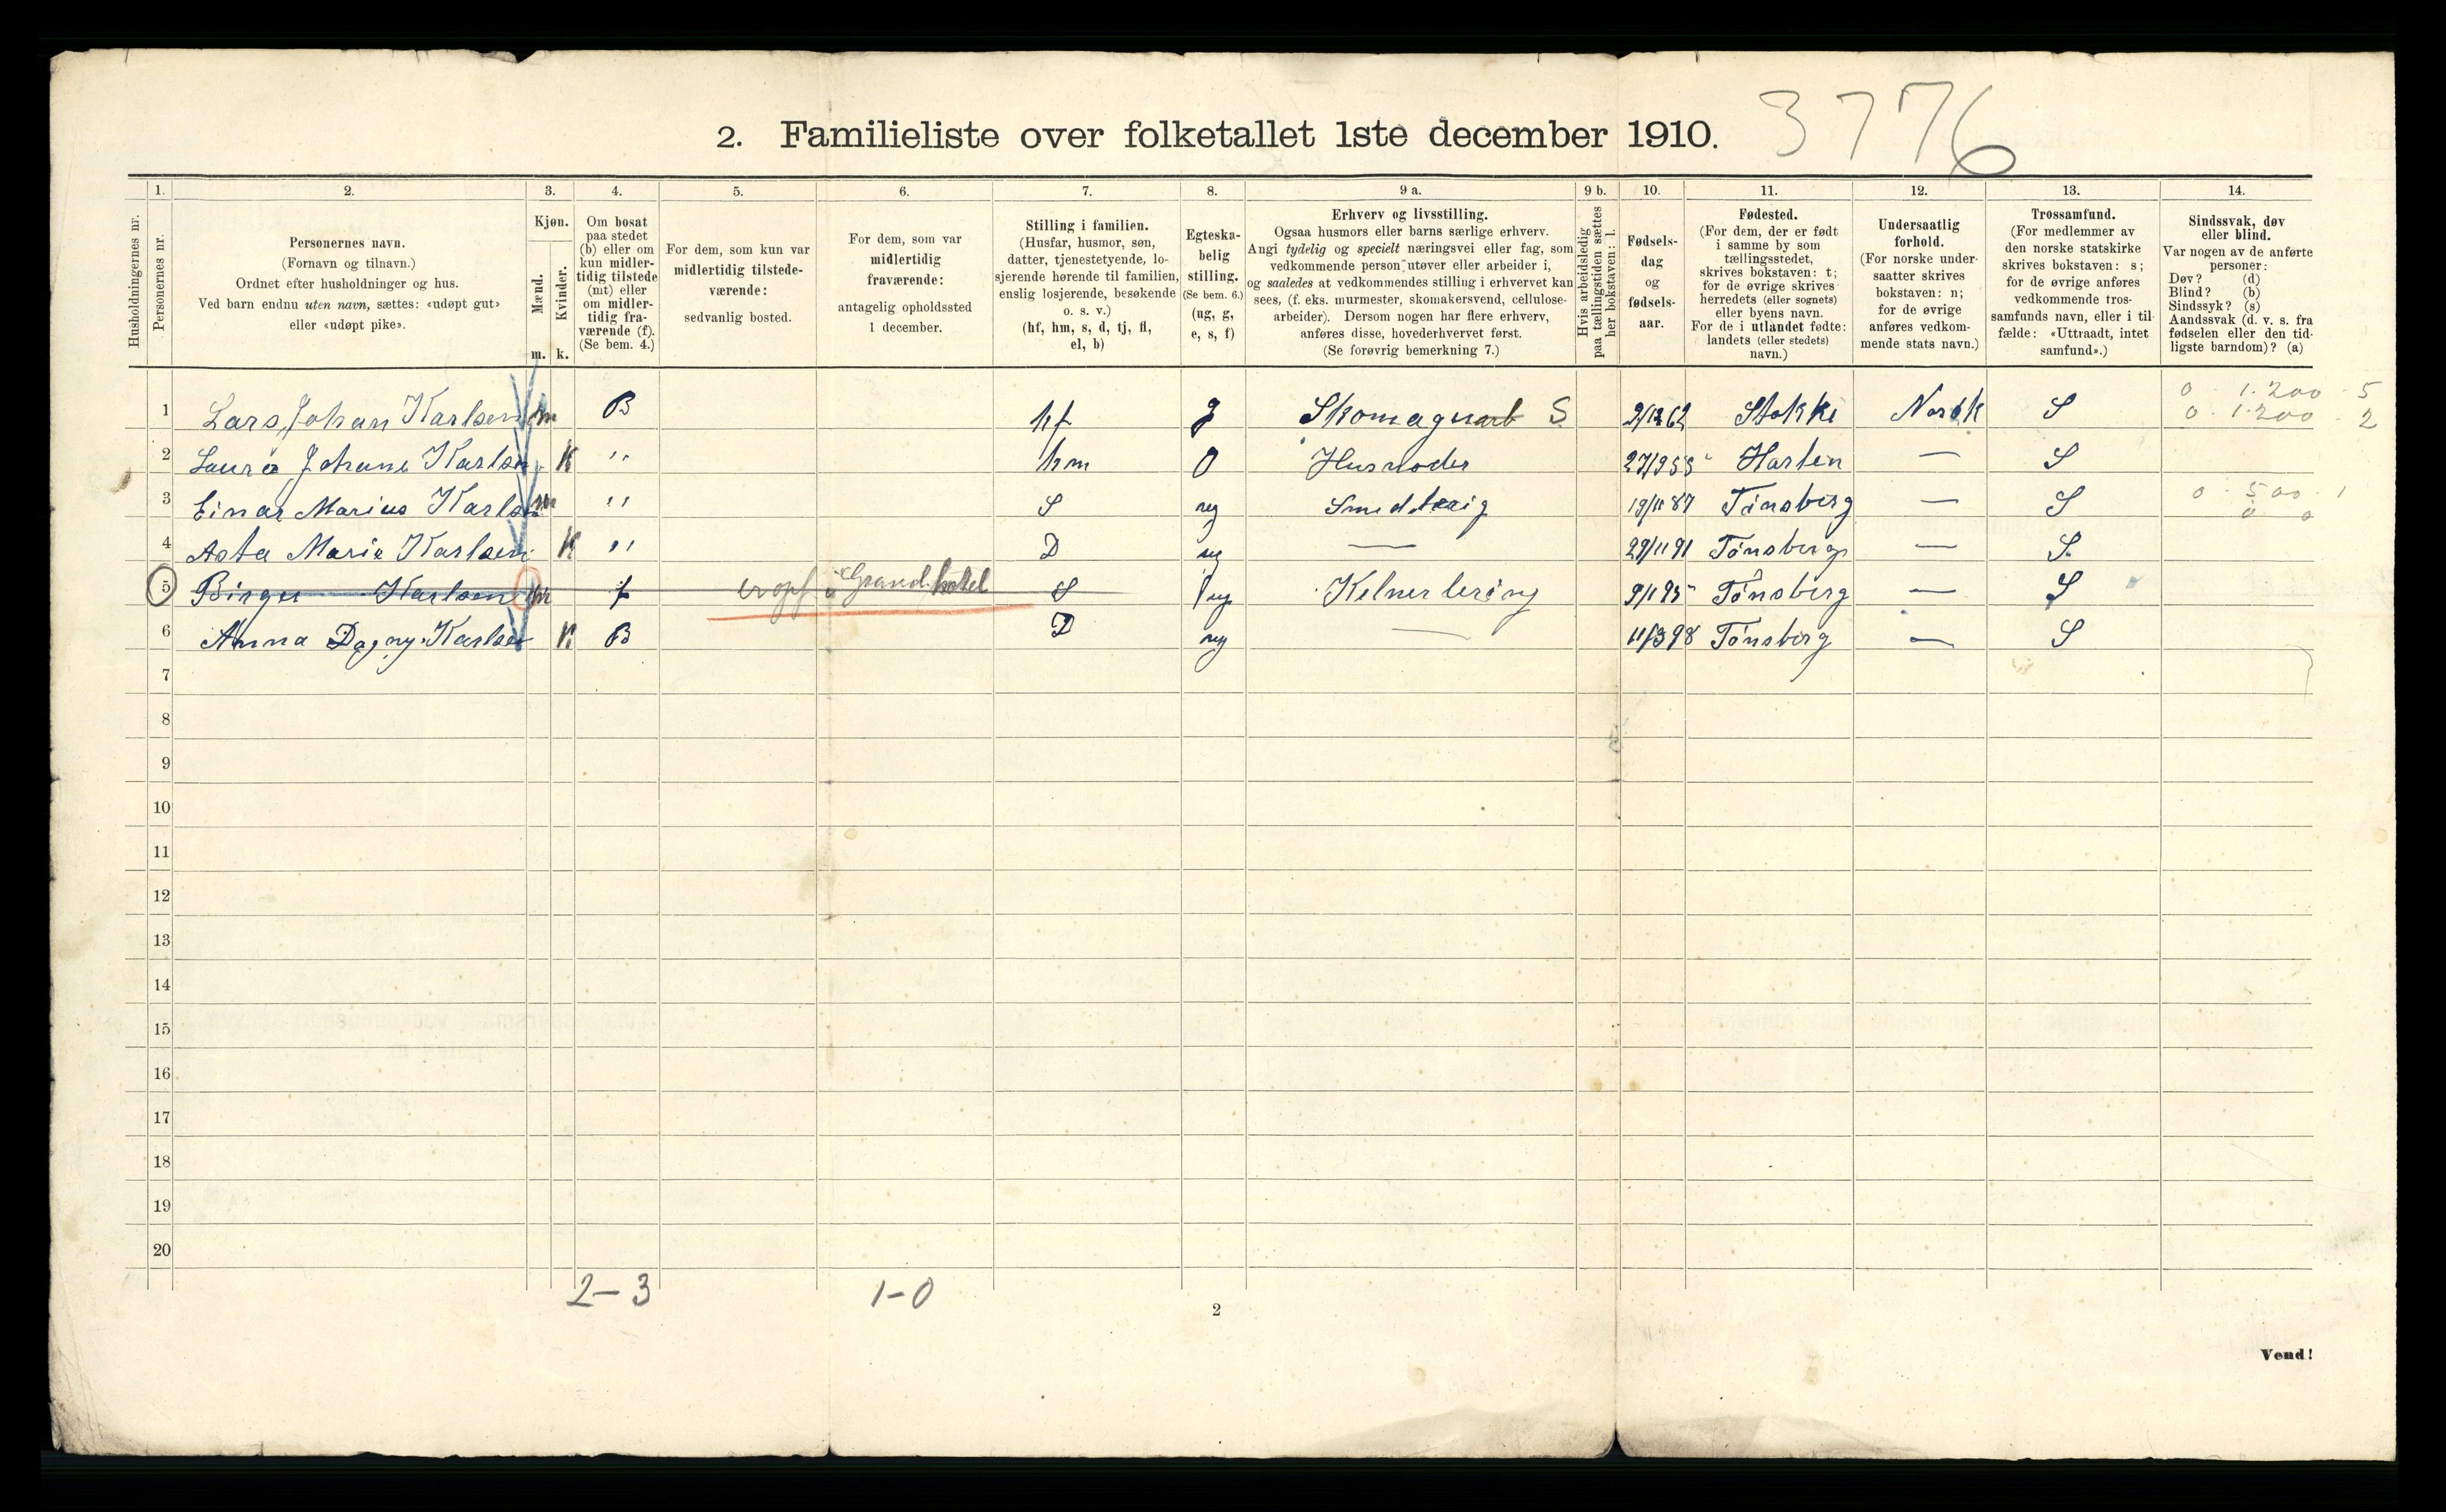 3776
2. Familieliste over folketallet 1ste december 1910.
Husholdningernes nr.
1. Personernes nr.
2. Personernes navn. (Fornavn og tilnavn.) Ordnet efter husholdninger og hus. Ved barn endnu uten navn, sættes: «udøpt gut» eller «udøpt pike».
3. Kjøn. Mænd. m. Kvinder. k.
4. Om bosat paa stedet (b) eller om kun midlertidig tilstede (mt) eller om midlertidig fraværende (f). (Se bem. 4.)
5. For dem, som kun var midlertidig tilstedeværende: sedvanlig bosted.
6. For dem, som var midlertidig fraværende: antagelig opholdssted 1 december.
7. Stilling i familien. (Husfar, husmor, søn, datter, tjenestetyende, losjerende hørende til familien, enslig losjerende, besøkende o. s. v.) (hf, hm, s, d, tj, fl, el, b)
8. Egteskabelig stilling. (Se bem. 6.) (ug, g, e, s, f)
9 a. Erhverv og livsstilling. Ogsaa husmors eller barns særlige erhverv. Angi tydelig og specielt næringsvei eller fag, som vedkommende person utøver eller arbeider i, og saaledes at vedkommendes stilling i erhvervet kan sees, (f. eks. murmester, skomakersvend, cellulosearbeider). Dersom nogen har flere erhverv, anføres disse, hovederhvervet først. (Se forøvrig bemerkning 7.)
9 b. Hvis arbeidsledig paa tællingstiden sættes her bokstaven: l.
10. Fødselsdag og fødselsaar.
11. Fødested. (For dem, der er født i samme by som tællingsstedet, skrives bokstaven: t; for de øvrige skrives herredets (eller sognets) eller byens navn. For de i utlandet fødte: landets (eller stedets) navn.)
12. Undersaatlig forhold. (For norske undersaatter skrives bokstaven: n; for de øvrige anføres vedkommende stats navn.)
13. Trossamfund. (For medlemmer av den norske statskirke skrives bokstaven: s; for de øvrige anføres vedkommende trossamfunds navn, eller i tilfælde: «Uttraadt, intet samfund».)
14. Sindssvak, døv eller blind. Var nogen av de anførte personer: Døv? (d) Blind? (b) Sindssyk? (s) Aandssvak (d. v. s. fra fødselen eller den tidligste barndom)? (a)
1 Lars Johan Karlsen m B hf g Skomagerarb S 2/12 62 Stokke Norsk S 0 1.200 5
0 1.200 2
2 Laura Johane Karlsen K " hm Husmoder 27/9 55 S
3 Einar Marius Karlsen m " S ug 19/11 87 Tønsberg — S 0 500 1
0 0
4 Asta Marie Karlsen K " D ug — 29/11 91 Tønsberg — S.
5 Birger Karlsen m f Grand hotel S ug Kelner lering 9/1 95 Tønsberg — S
6 Anna Dagny Karlsen K B D ug — 11/3 98 Tønsberg — S
7
8
9
10
11
12
13
14
15
16
17
18
19
20
2-3 1-0
2
Vend!